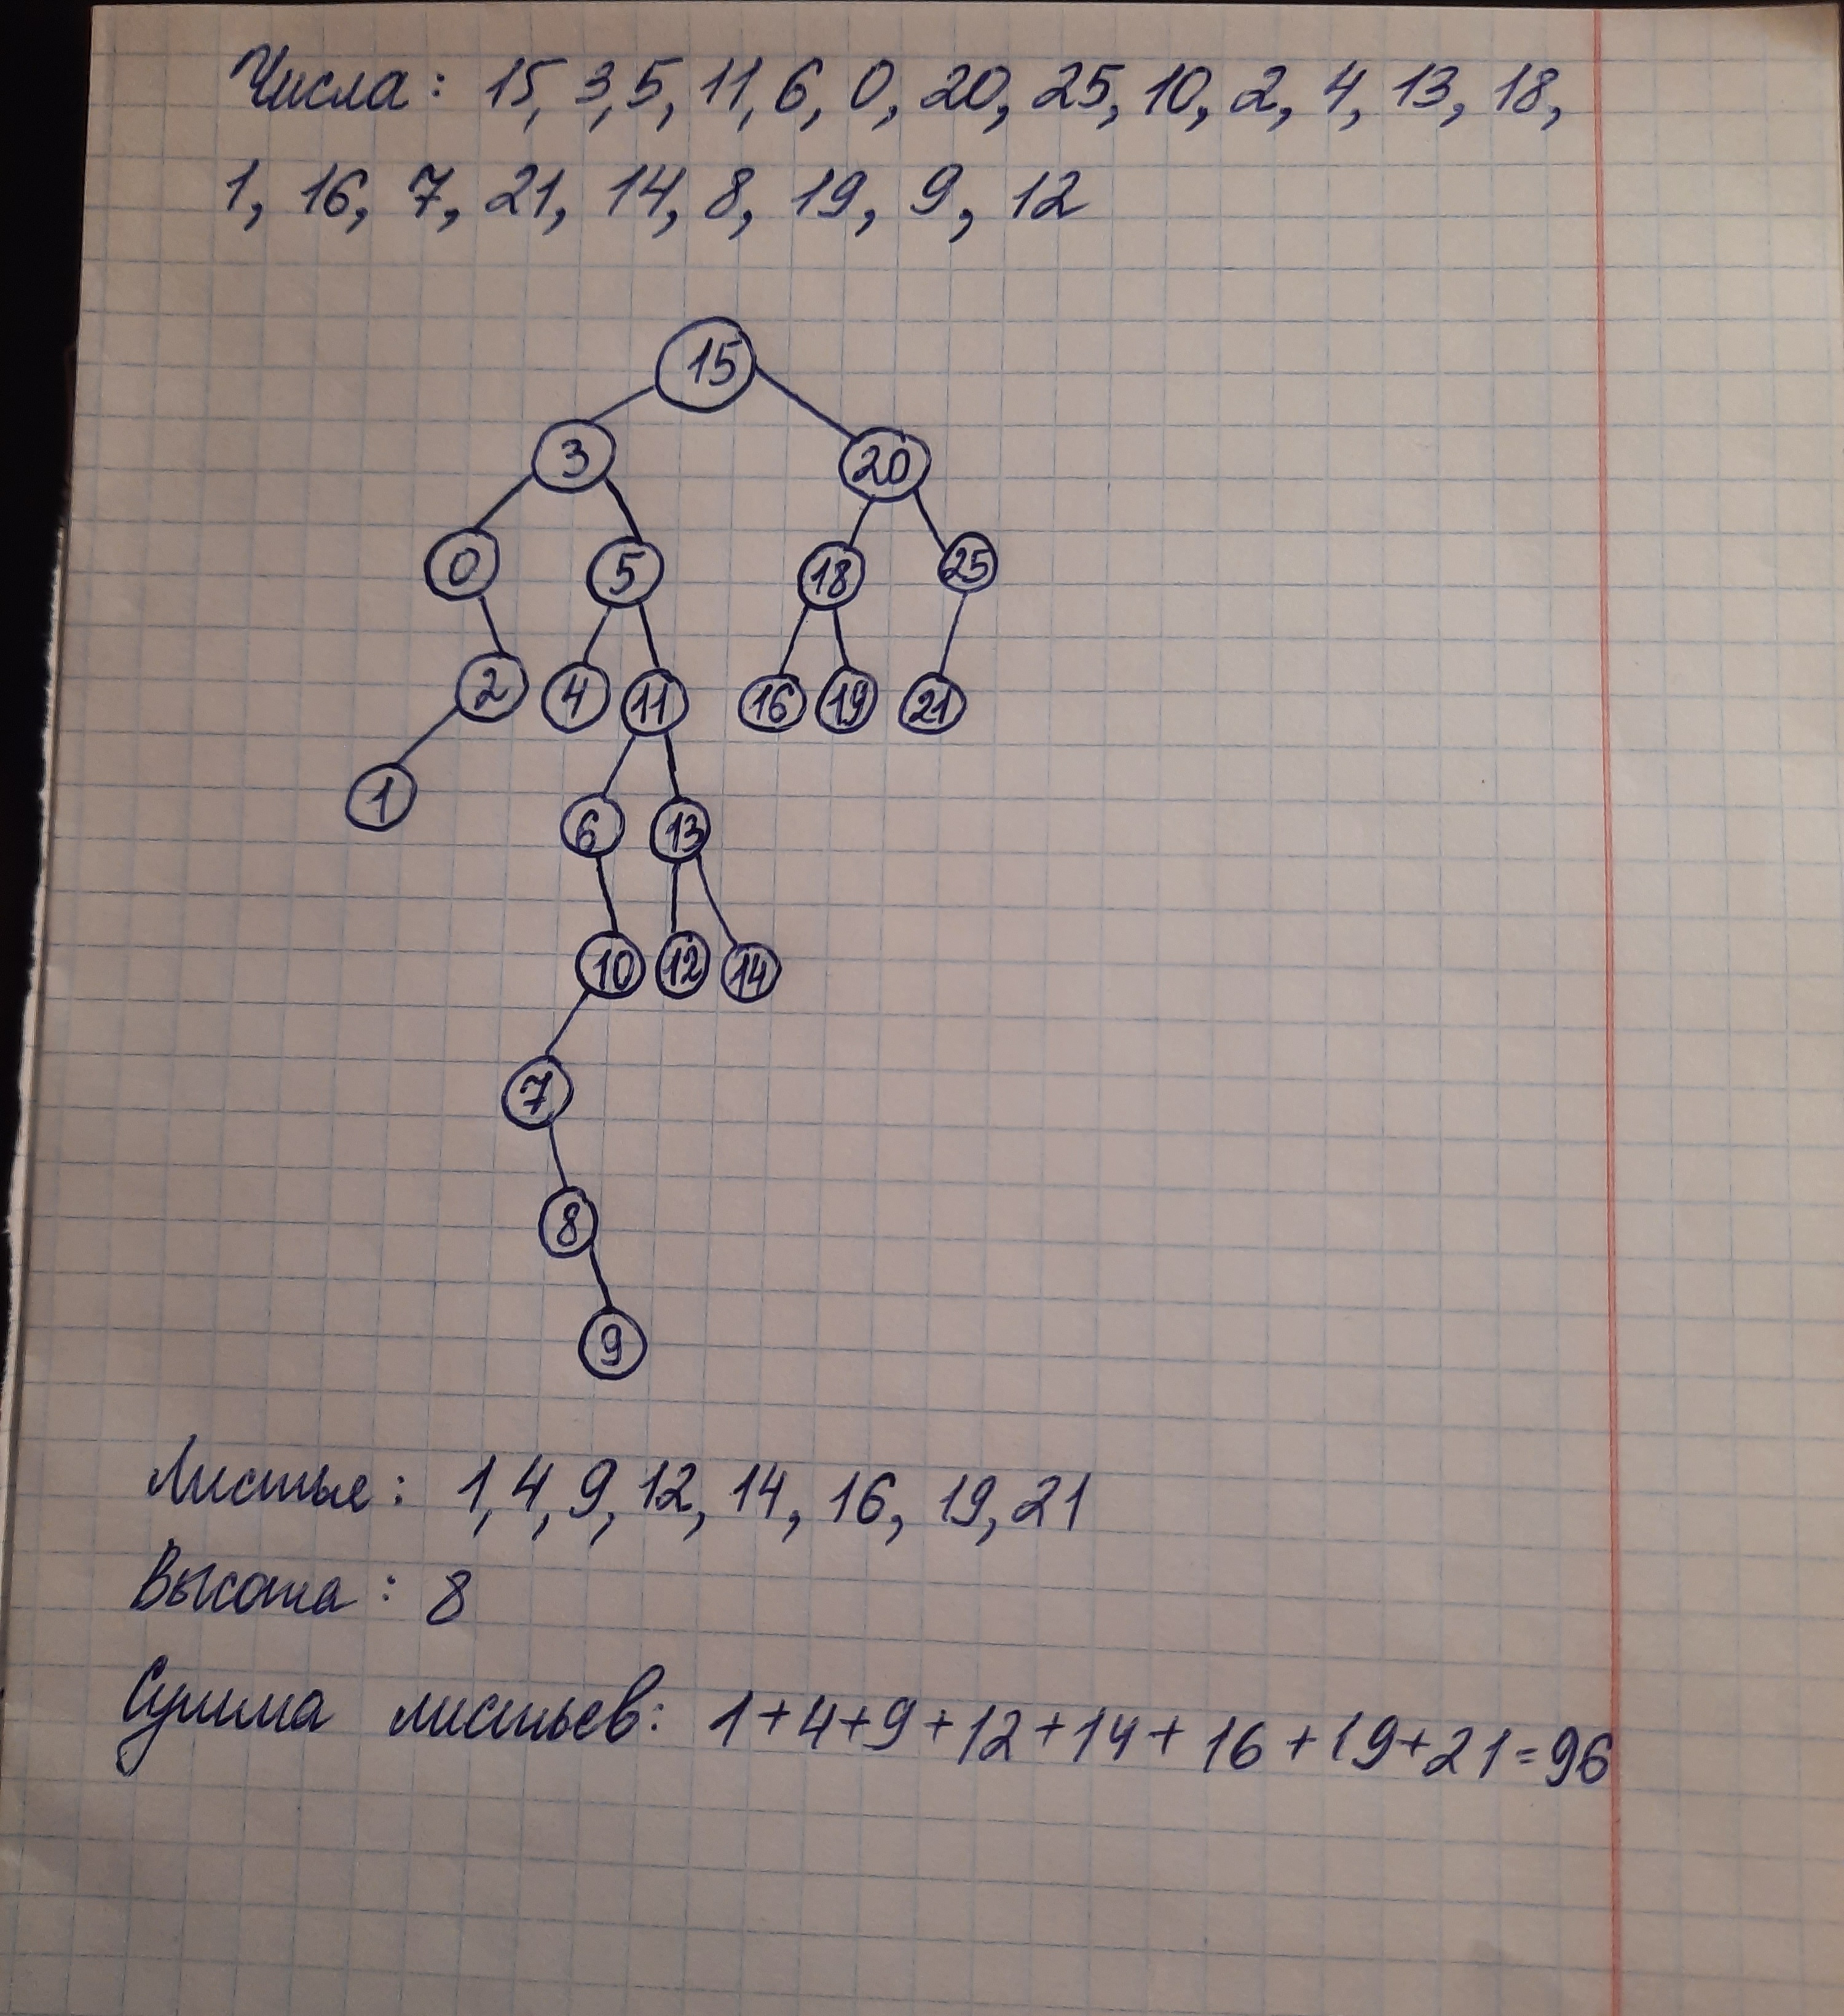 Числа: 15, 3, 5, 11, 6, 0, 20, 25, 10, 2, 4, 13, 18,
1, 16, 7, 21, 14, 8, 19, 9, 12
15
3 20
0 5 18 25
2 4 11 16 19 21
1 6 13
10 12 14
7
8
9
Листья: 1, 4, 9, 12, 14, 16, 19, 21
Высота: 8
Сумма листьев: 1+4+9+12+14+16+19+21=96